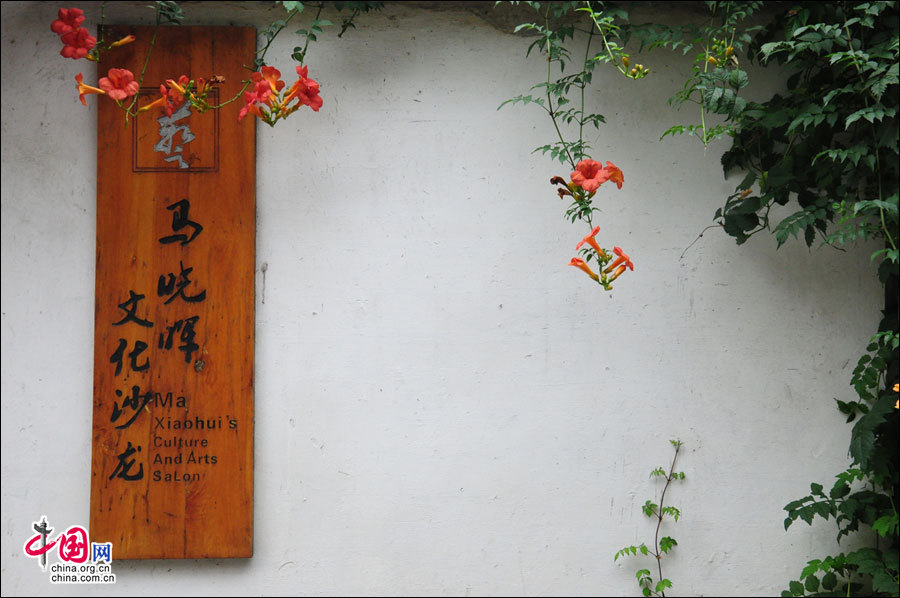 艺
马晓晖
文化沙龙
Ma
Xiaohui's
Culture
And Arts
SaLon
中国网
china.org.cn
www.china.com.cn